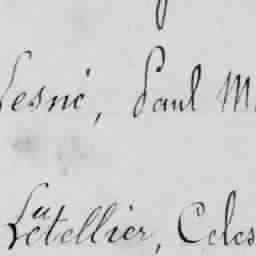 Lesné, Paul M
Letellier, Celes